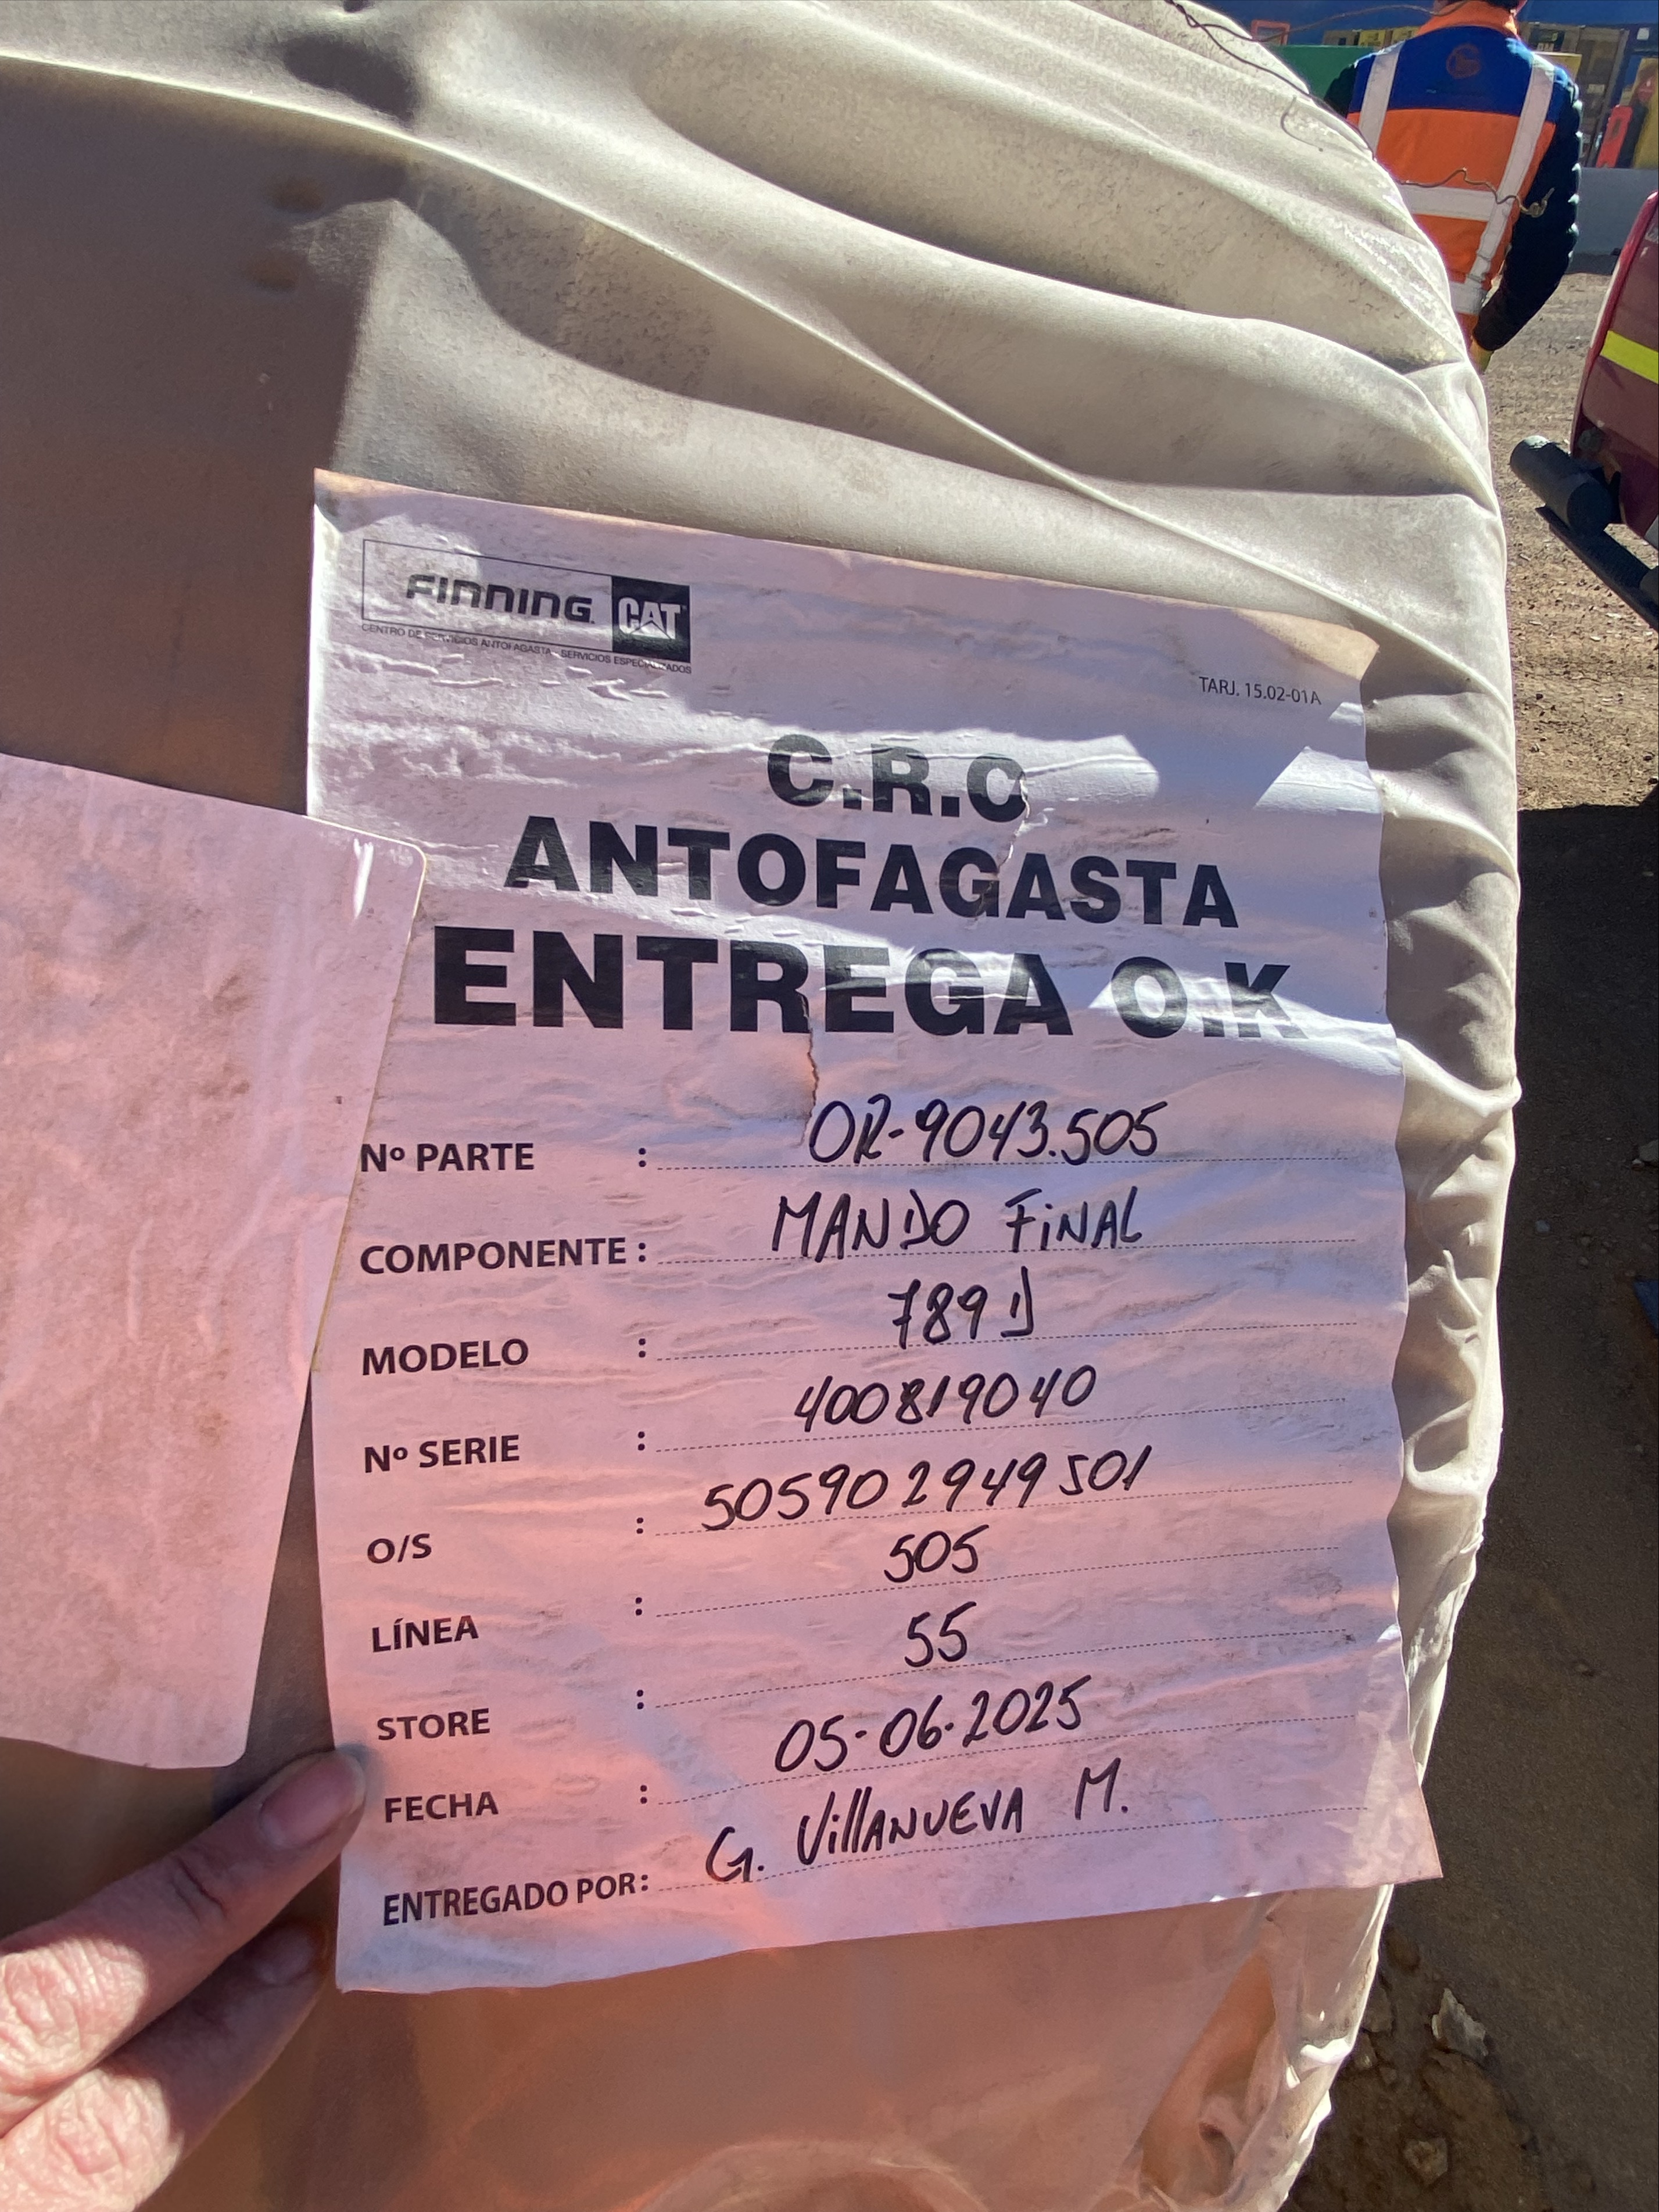 FINNING CAT
CENTRO DE SERVICIOS ANTOFAGASTA - SERVICIOS ESPECIALIZADOS
TARJ. 15.02-01A
C.R.C
ANTOFAGASTA
ENTREGA O.K
Nº PARTE : OR-9043.505
COMPONENTE : MANDO FINAL
MODELO : 789 D
Nº SERIE : 400819040
O/S : 505902949501
LÍNEA : 505
STORE : 55
FECHA : 05-06-2025
ENTREGADO POR : G. VillANUEVA M.